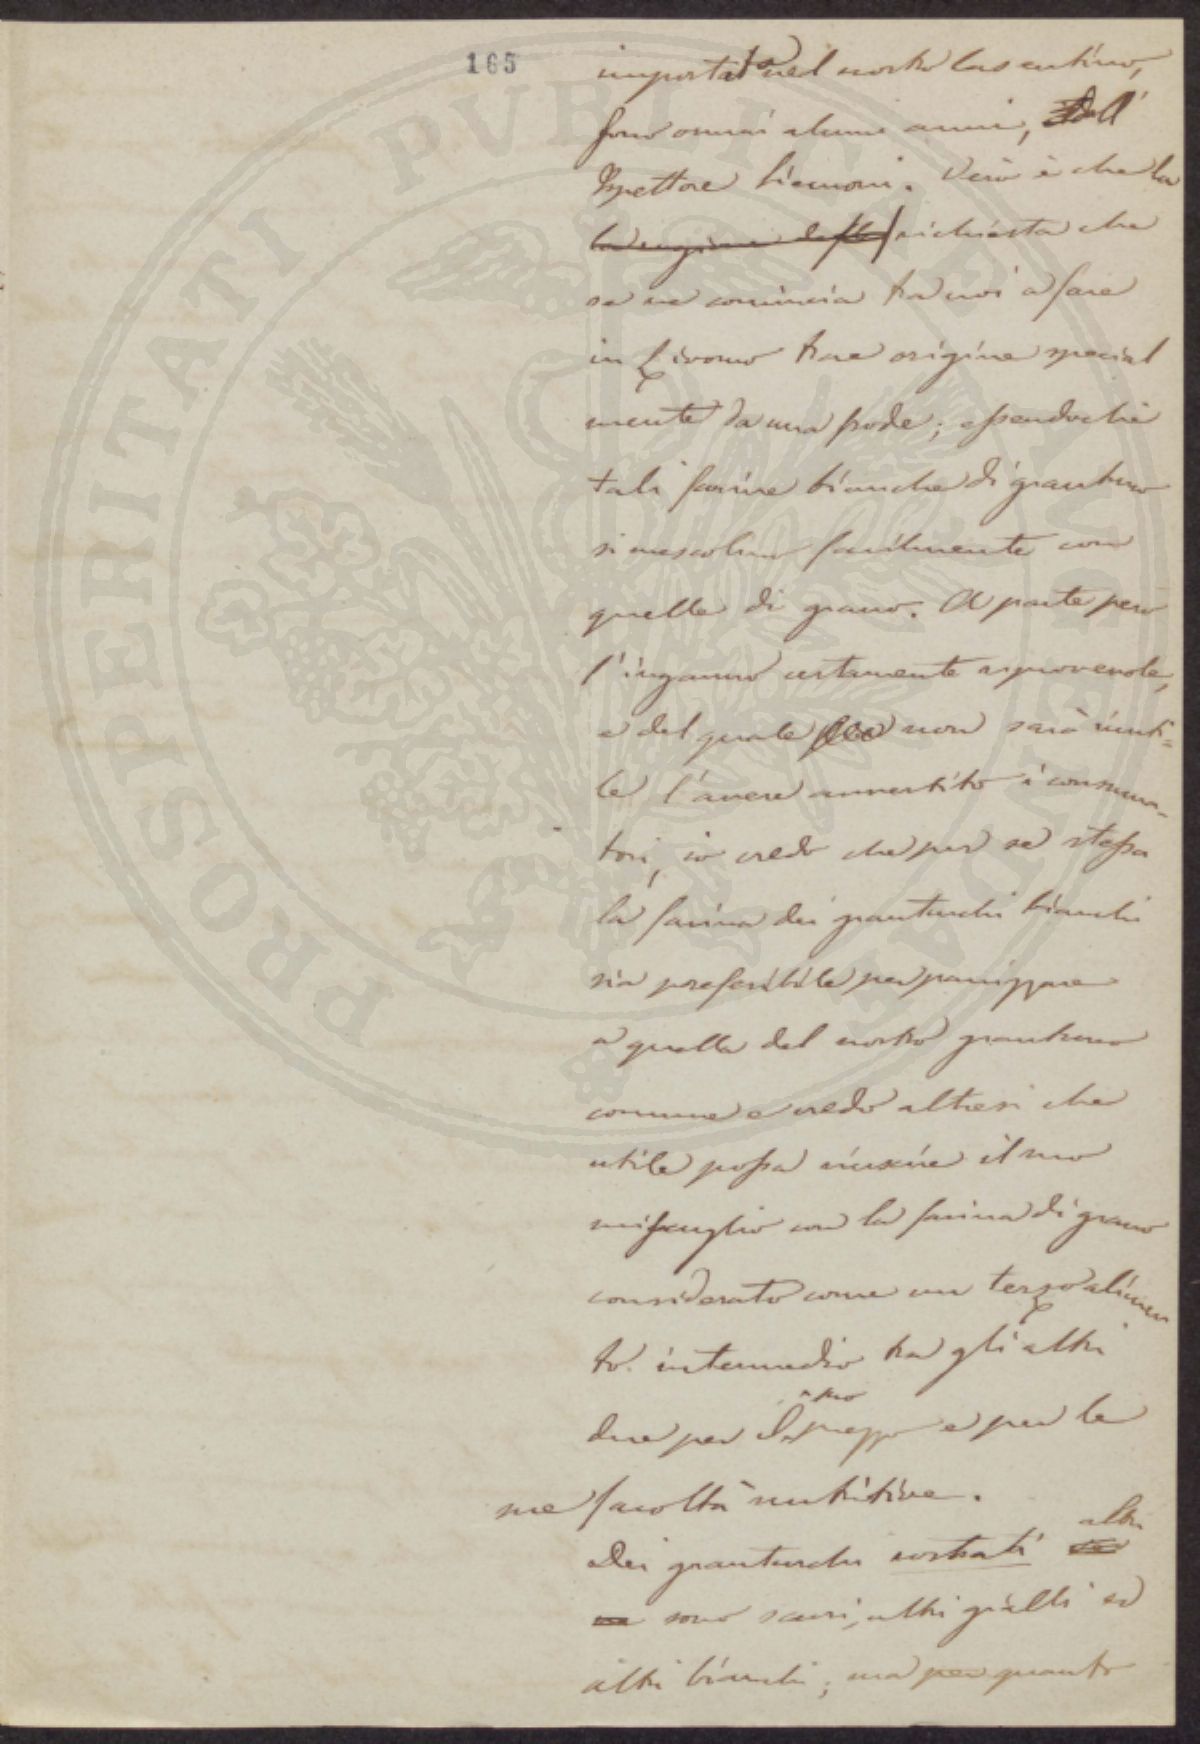 165
importato nel nostro Casentino,
sono omai alcuni anni, dall'
Ispettore Siemoni. Vero è che la
la ragione della richiesta che
se ne comincia tra noi a fare
in Livorno trae origine special
mente da una frode; essendochè
tali farine bianche di granturco
si mescolino facilmente con
quelle di grano. A parte però
l'inganno certamente riprovevole,
e del quale non sarà inuti=
le l'avere avvertito i consuma-
tori, io credo che per se stessa
la farina dei granturchi bianchi
sia preferibile per panizzare
a quella del nostro granturco
comune e credo altresì che
utile possa riuscire il suo
miscuglio con la farina di grano
considerato come un terzo alimen
to intermedio tra gli altri
due per suo prezzo e per le
sue facoltà nutritive.
Dei granturchi rostrati altri
sono scuri, altri gialli ed
altri bianchi; ma per quanto
PROSPERITATI PVBLICAE AVGENDAE